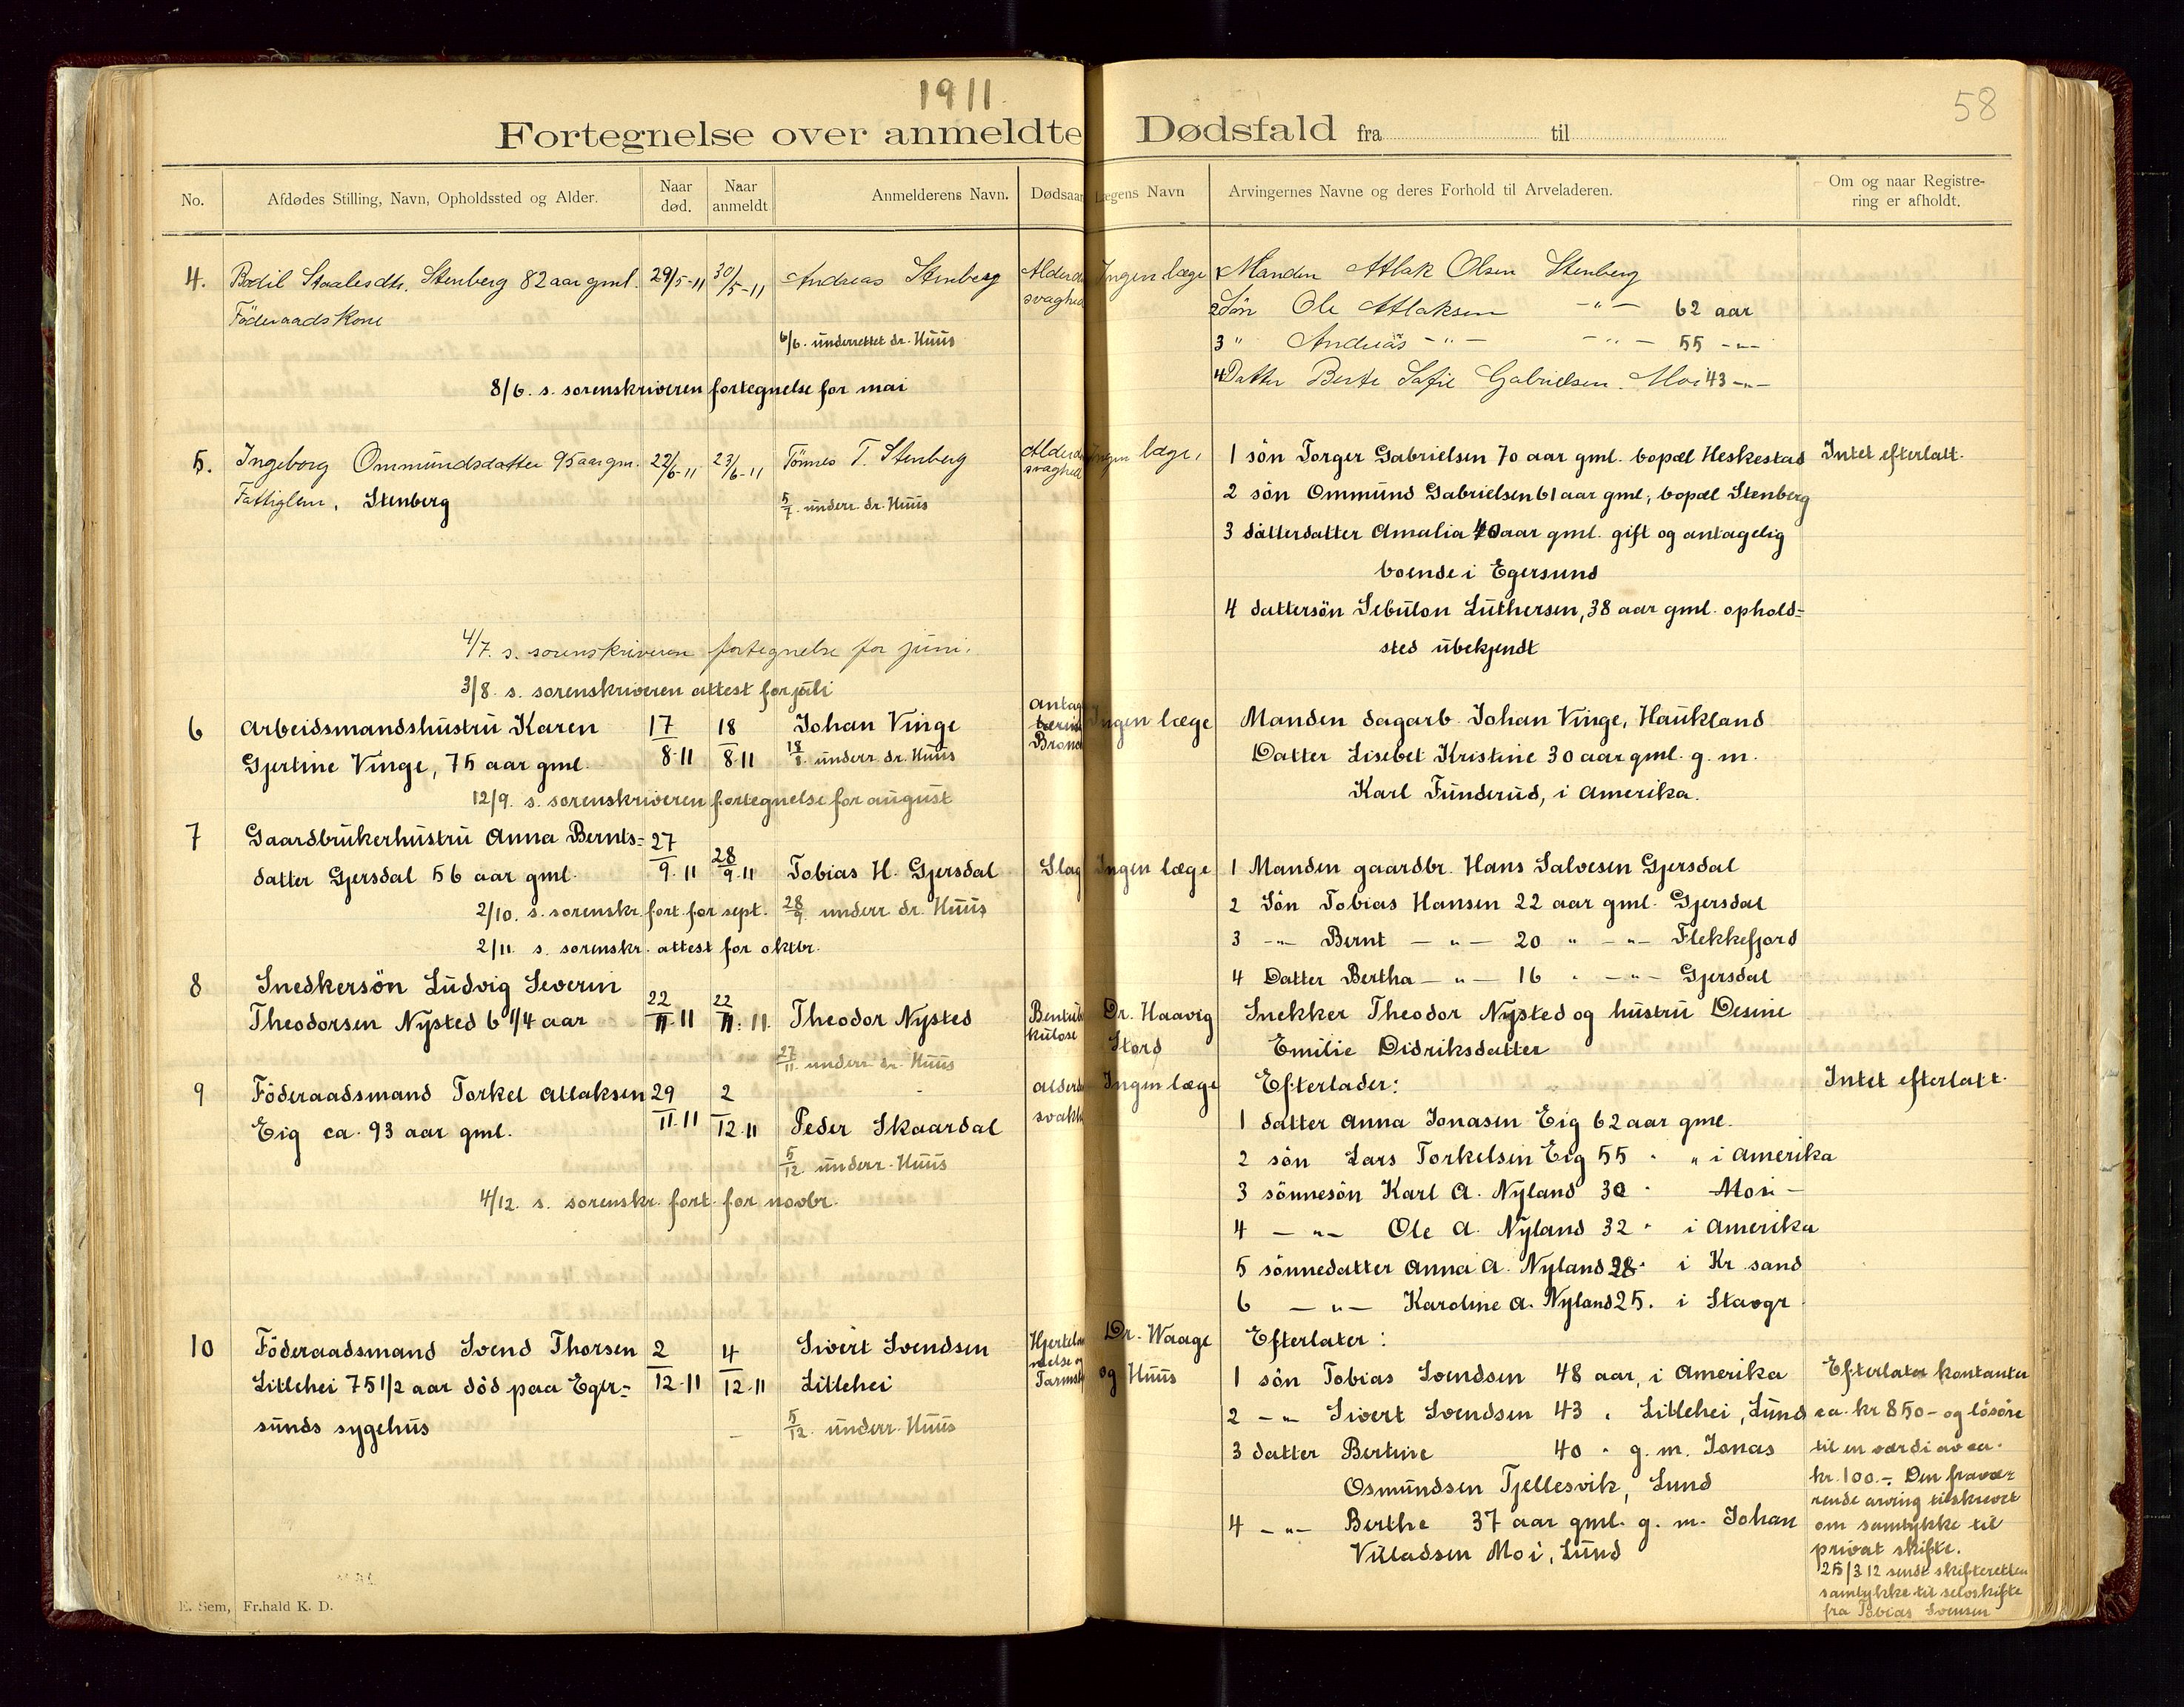 1911.
58
Fortegnelse over anmeldte Dødsfald fra til
No.
Afdødes Stilling, Navn, Opholdssted og Alder.
Naar død.
Naar anmeldt
Anmelderens Navn.
Dødsaar
Lægens Navn
Arvingernes Navne og deres Forhold til Arveladeren.
Om og naar Registre-
ring er afholdt.
4. Bodil Staalesdtr. Stenberg 82 aar gml. 29/5-11 30/5-11 Andreas Stenberg Alderd Ingen læge
Föderaadskone svaghed
6/6. underrettet dr. Huus
8/6. s. sorenskriveren fortegnelse for mai
1 Manden Atlak Olsen Stenberg
2 Sön Ole Atlaksen -"- 62 aar
3 " Andreas -"- -"- 55 -"-
4 Datter Berte Sofie Gabrielsen. Moi 43 -"-
5. Ingeborg Ommundsdatter 95 aar gm. 22/6-11 23/6-11 Tönnes T. Stenberg Alderd Ingen læge,
Fattiglem, Stenberg svaghed
5/7. underr. dr. Huus
1 sön Torger Gabrielsen 70 aar gml. bopæl Heskestad Intet efterlatt.
2 sön Ommund Gabrielsen 61 aar gml, bopæl Stenberg
3 datterdatter Amalia 40 aar gml. gift og antagelig
boende i Egersund
4 dattersön Sebulon Luthersen, 38 aar gml. ophold=
sted ubekjendt
4/7. s. sorenskriveren fortegnelse for juni.
3/8. s. sorenskriveren attest for juli
6 Arbeidsmandshustru Karen 17/8-11 18/8-11 Johan Vinge Antag Ingen læge
Gjertine Vinge, 75 aar gml. 18/8. underr. dr. Huus
12/9. s. sorenskriveren fortegnelse for august
Manden dagarb. Johan Vinge, Haukland
Datter Lisebet Kristine 30 aar gml. g. m.
Karl Funderud, i Amerika.
7 Gaardbrukerhustru Anna Bernts= 27/9.11 28/9.11
datter Gjersdal 56 aar gml. Tobias H. Gjersdal Slag Ingen læge
2/10. s. sorenskr. fort. for sept. 28/9 underr. dr. Huus
2/11. s. sorenskr. attest for oktbr.
1 Manden gaardbr. Hans Salvesen Gjersdal
2 Sön Tobias Hansen 22 aar gml. Gjersdal
3 -"- Bernt -"- 20 " -"- Flekkefjord
4 Datter Bertha -"- 16 " -"- Gjersdal
8 Snedkersön Ludvig Severin
Theodorsen Nysted 6 1/4 aar 22/11.11 22/11.11. Theodor Nysted Bentub Dr. Haavig
kulose Stord
27/11 underr. dr. Huus
Snekker Theodor Nysted og hustru Desine
Emilie Didriksdatter
9 Föderaadsmand Torkel Atlaksen 29/11.11 2/12.11 Alderd Ingen læge
Eig ca. 93 aar gml. Peder Skaardal svakh
5/12. underr. Huus
4/12. s. sorenskr. fort. for novbr.
Efterlader: Intet efterlatt.
1 datter Anna Jonasen Eig 62 aar gml.
2 sön Lars Torkelsen Eig 55 " " i Amerika
3 sönnesön Karl A. Nyland 30 " Mosi -
4 -"- Ole A. Nyland 32 " i Amerika
5 sönnedatter Anna A. Nyland 28 " i Kr.sand
6 -"- Karoline A. Nyland 25. i Stavgr.
10 Föderaadsmand Svend Thorsen 2/12.11 4/12.11 Sivert Svendsen Dr. Waage
Litlehei 75 1/2 aar död paa Eger= Litlehei og Huus
sunds sygehus 5/12. underr. Huus
Efterlater:
1 sön Tobias Svendsen 48 aar, i Amerika
2 -"- Sivert Svendsen 43 " Litlehei, Lund
3 datter Bertine 40 " g. m. Jonas
Osmundsen Tjellesvik, Lund
4 -"- Berthe 37 aar gml. g. m. Johan
Villadsen Moi, Lund
Efterlater kontanter
ca. kr 850- og lösöre
til en værdi av ca.
kr. 100.-. Den fravæ=
rende arving tilskrevet
om samtykke til
privat skifte.
25/3 12 sendt skifteretten
samtykke til selvskifte
fra Tobias Svensen
E. Sem, Fr.hald K. D.